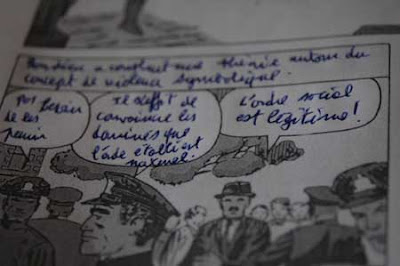 Bourdieu a construit une théorie autour du
concept de violence symbolique.
pas besoin
de les
punir
Il suffit de
convaincre les
dominés que
l'ordre établi est
naturel.
L'ordre social
est légitime!